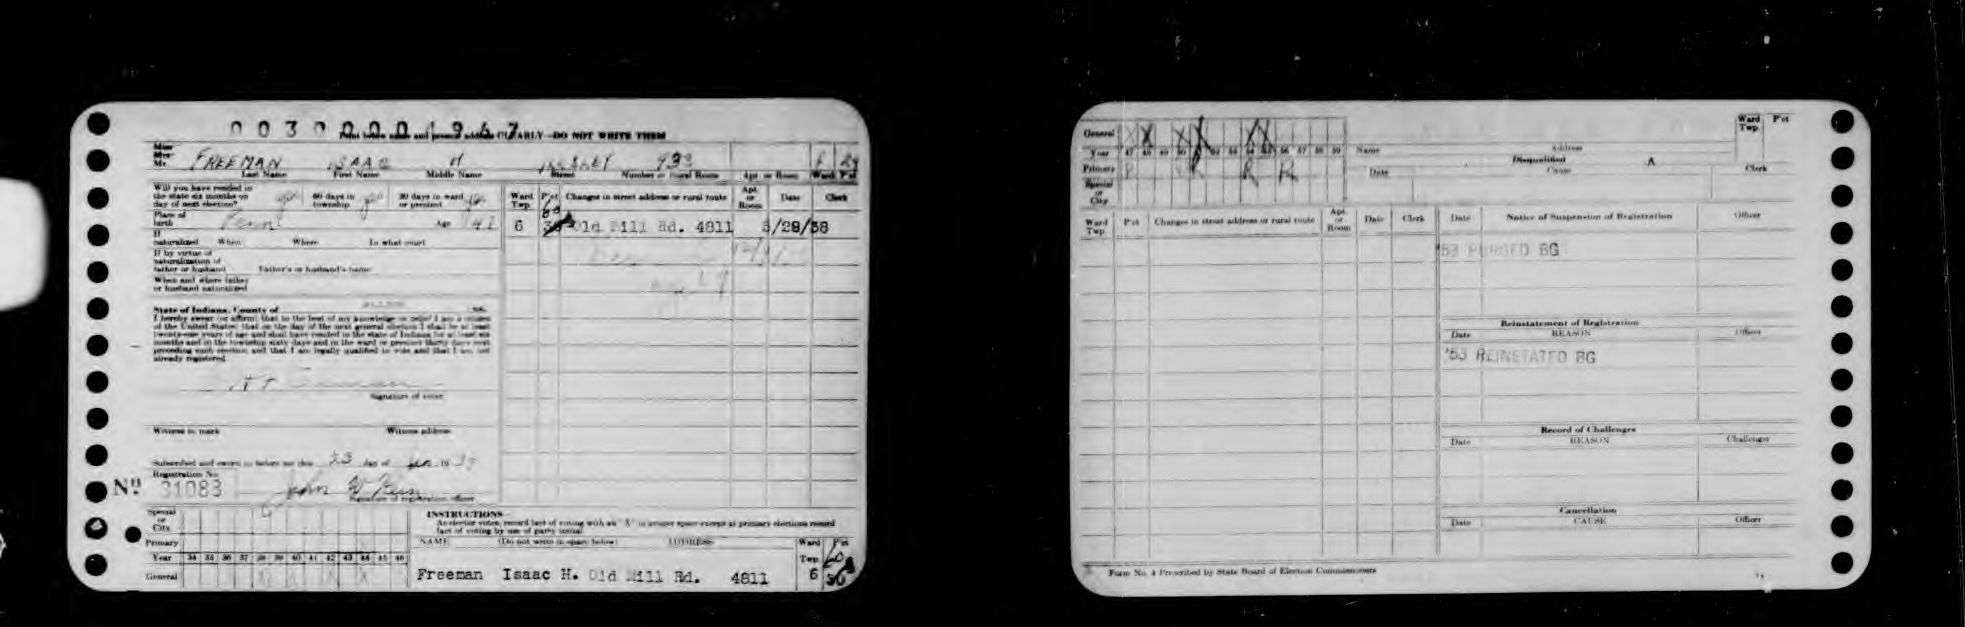 0030000 1967
Print below name and present address CLEARLY—DO NOT WRITE THEM
Miss
Mrs.
Mr.
FREEMAN ISAAC H 933
Last Name First Name Middle Name Street Number or Rural Route Apt. or Room Ward P'ct
Will you have resided in
the state six months on
day of next election? yes 60 days in
township yes 30 days in ward
or precinct yes
Place of
birth Penn Age
If
naturalized When Where In what court
If by virtue of
naturalization of
father or husband Father's or husband's name
When and where father
or husband naturalized
State of Indiana, County of SS.
I hereby swear (or affirm) that to the best of my knowledge or belief I am a citizen
of the United States; that on the day of the next general election I shall be at least
twenty-one years of age and shall have resided in the state of Indiana for at least six
months and in the township sixty days and in the ward or precinct thirty days next
preceding such election and that I am legally qualified to vote and that I am not
already registered
Freeman
Signature of voter
Witness to mark Witness address
Subscribed and sworn to before me this 23 day of 19
Registration No.
No 31083 John W
Signature of registration officer
Ward
Twp. P'ct Changes in street address or rural route Apt.
or
Room Date Clerk
6 Old Mill Rd. 4811 3/28/38
Special
or
City
Primary
Year 34 35 36 37 38 39 40 41 42 43 44 45 46
General X X
INSTRUCTIONS
As elector votes, record fact of voting with an "X" in proper space except at primary elections record
fact of voting by use of party initial
NAME (Do not write in space below) ADDRESS Ward
Twp. P'ct
Freeman Isaac H. Old Mill Rd. 4811 6
General X X X X X X
Year 47 48 49 50 51 52 53 54 55 56 57 58 59
Primary R R R R
Special
or
City
Name Address Ward
Twp. P'ct
Disqualified
Date Cause Clerk
Ward
Twp. P'ct Changes in street address or rural route Apt.
or
Room Date Clerk
Date Notice of Suspension of Registration Officer
'53 PURGED BG
Reinstatement of Registration
Date REASON Officer
'53 REINSTATED BG
Record of Challenges
Date REASON Challenger
Cancellation
Date CAUSE Officer
Form No. 4 Prescribed by State Board of Election Commissioners